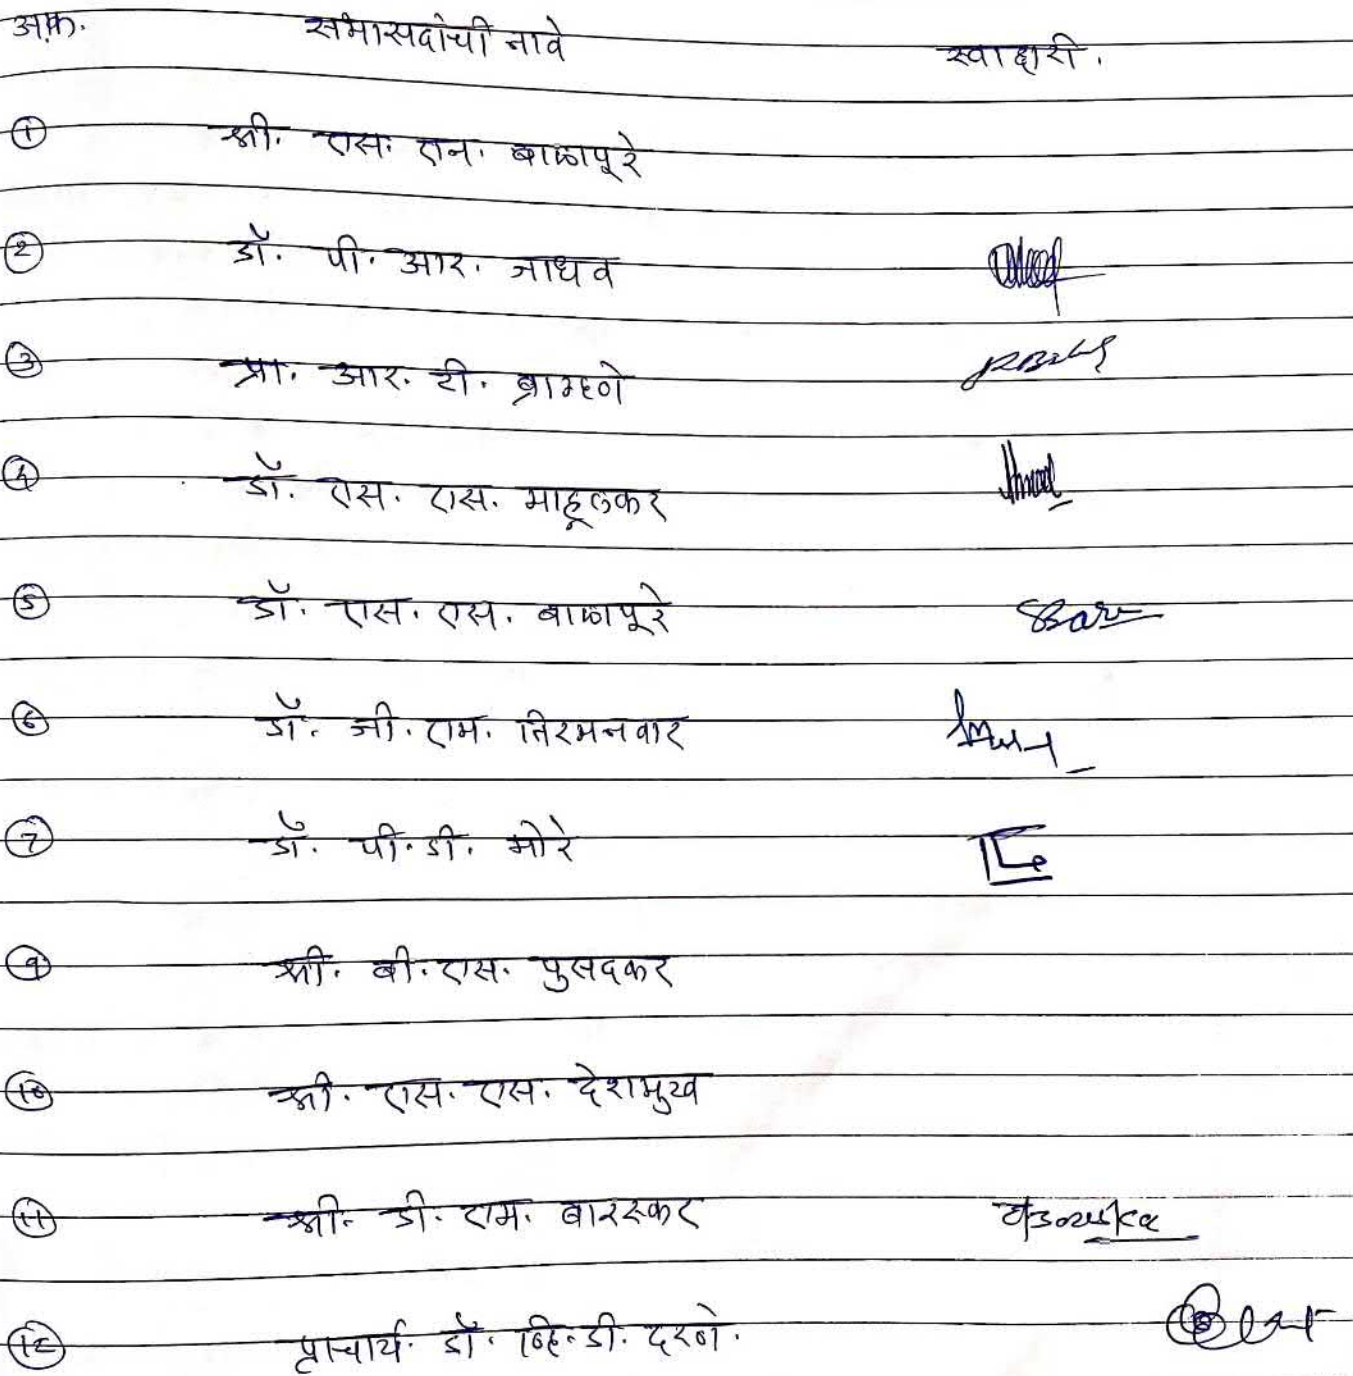 अ.क्र. सभासदांची नावे स्वाक्षरी.
① श्री. एस. एन. बाळापूरे
② डॉ. पी. आर. जाधव
③ प्रा. आर. टी. ब्राम्हणे
④ डॉ. एस. एस. माहूलकर
⑤ डॉ. एस. एस. बाळापूरे
⑥ डॉ. जी. एम. तिरमनवार
⑦ डॉ. पी. डी. मोरे
⑨ श्री. बी. एस. पुसदकर
⑩ श्री. एस. एस. देशमुख
⑪ श्री. डी. एम. बारस्कर
⑫ प्राचार्य. डॉ. व्हि. डी. दरणे.